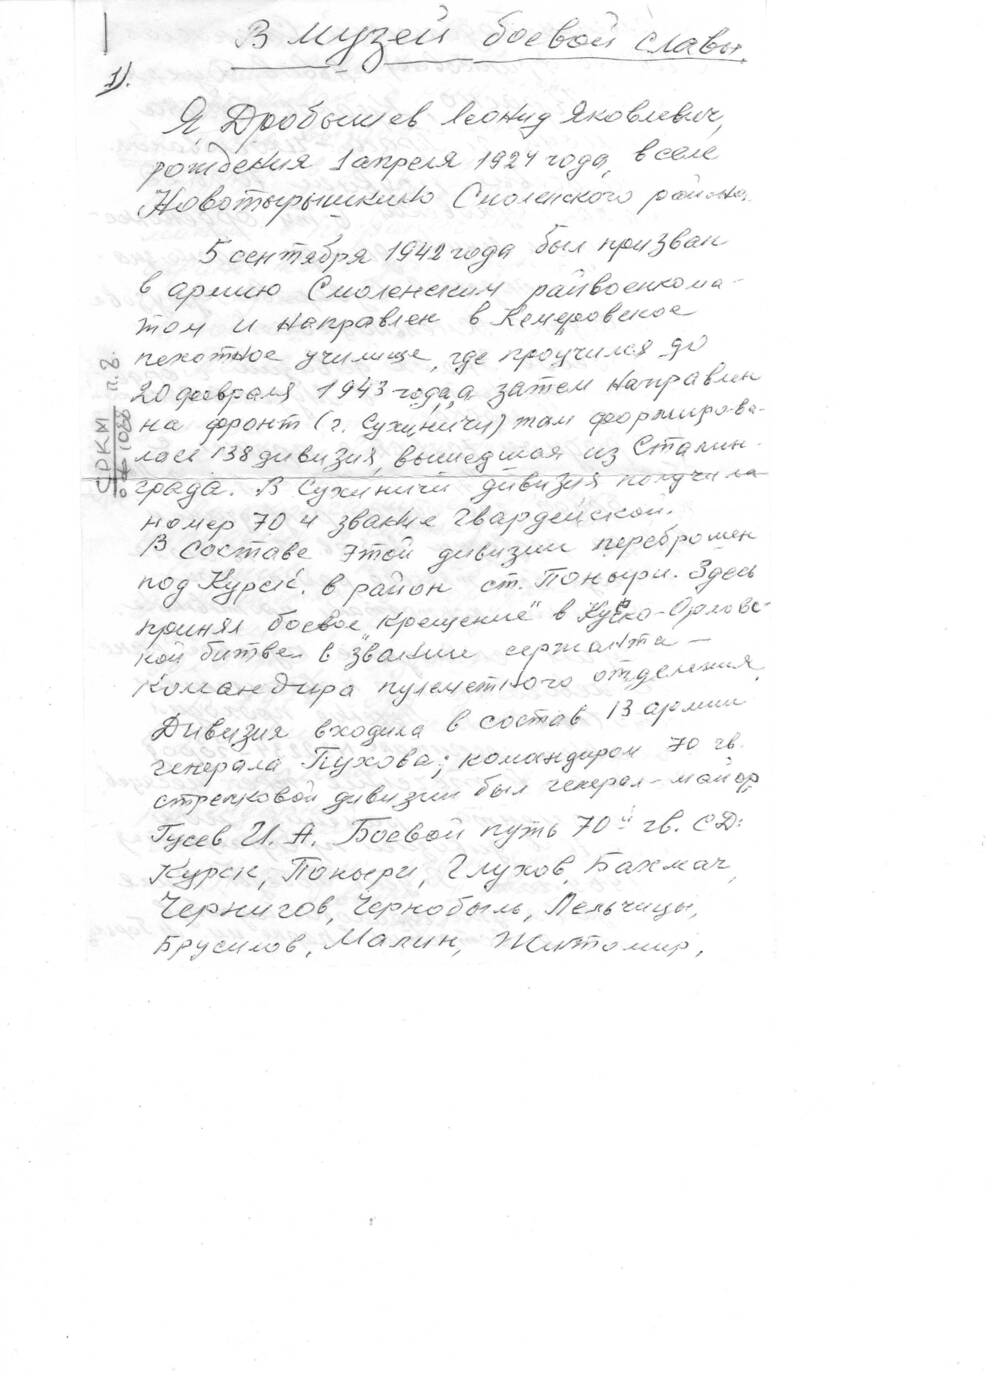 В музей боевой славы.
1).
Я, Дробышев Леонид Яковлевич,
рождения 1 апреля 1924 года, в селе
Новотырышкино Смоленского района.
5 сентября 1942 года был призван
в армию Смоленским райвоенкома-
том и направлен в Кемеровское
пехотное училище, где проучился до
20 февраля 1943 года, а затем направлен
на фронт (г. Сухиничи) там формирова-
лась 138 дивизия, вышедшая из Сталин-
града. В Сухиничи дивизия получила
номер 70 и звание Гвардейской.
В составе этой дивизии переброшен
под Курск, в район ст. Поныри. Здесь
принял боевое "крещение" в Курско-Орловс-
кой битве в звании сержанта –
командира пулеметного отделения.
Дивизия входила в состав 13 армии
генерала Пухова; командиром 70 гв.
стрелковой дивизии был генерал-майор
Гусев И. А. Боевой путь 70й гв. СД:
Курск, Поныри, Глухов, Бахмач,
Чернигов, Чернобыль, Лельчицы,
Брусилов, Малин, Житомир,
СРКМ п. 8.
оф 1088